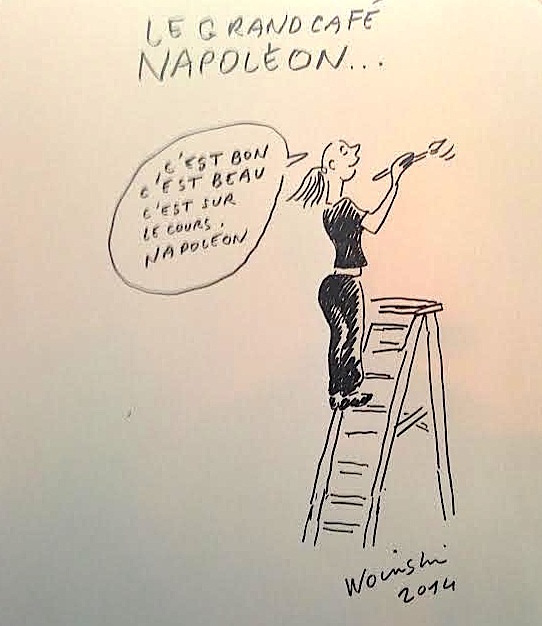 LE GRAND CAFÉ
NAPOLÉON...
C'EST BON
C'EST BEAU
C'EST SUR
LE COURS.
NAPOLÉON
Wolinski
2014